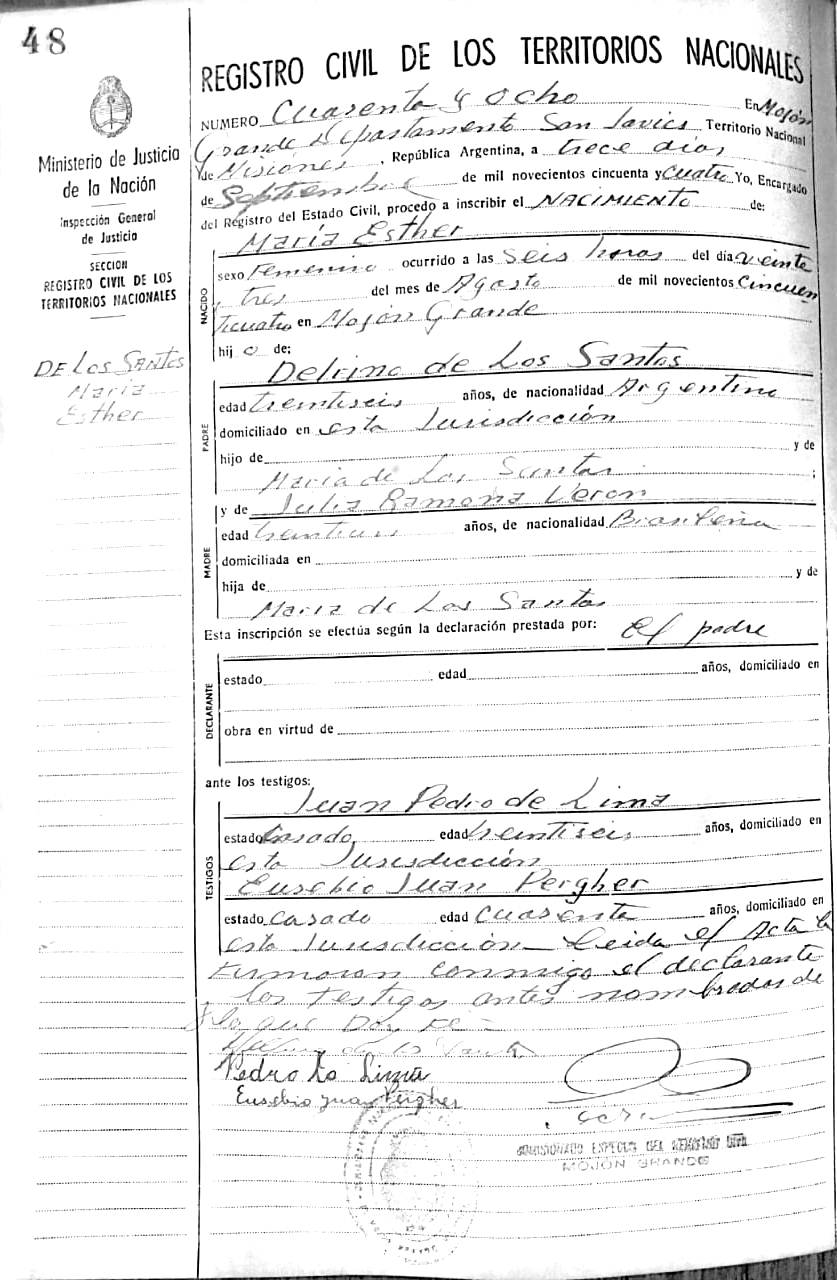 48
REGISTRO CIVIL DE LOS TERRITORIOS NACIONALES
Ministerio de Justicia
de la Nación
Inspección General
de Justicia
SECCION
REGISTRO CIVIL DE LOS
TERRITORIOS NACIONALES
DE Los SANTOS
Maria
Esther
NUMERO Cuarenta y ocho En Mojón
Grande Departamento San Javier, Territorio Nacional
de Misiones, República Argentina, a trece días
de Septiembre de mil novecientos cincuenta y Cuatro Yo, Encargado
del Registro del Estado Civil, procedo a inscribir el NACIMIENTO de:
María Esther
NACIDO
sexo Femenino ocurrido a las seis horas del día veinte
tres del mes de Agosto de mil novecientos Cincuen
ticuatro en Mojón Grande
hijo de:
Delfino de Los Santos
PADRE
edad treintiseis años, de nacionalidad Argentino
domiciliado en esta Jurisdicción
hijo de y de
Maria de Los Santos ;
y de Julia Ramona Veron
MADRE
edad años, de nacionalidad Brasileña
domiciliada en
hija de y de
Maria de Los Santos
Esta inscripción se efectúa según la declaración prestada por: el padre
DECLARANTE
estado edad años, domiciliado en
obra en virtud de
ante los testigos:
Juan Pedro de Lima
TESTIGOS
estado Casado edad treintiseis años, domiciliado en
esta Jurisdicción
Eusebio Juan Pergher
estado casado edad cuarenta años, domiciliado en
esta Jurisdicción Leida el Acta la
firmaron conmigo el declarante
los testigos antes nombrados de
lo que Doy Fe
Pedro Lima
Eusebio Juan Pergher
COMISIONADO ESPECIAL DEL REGISTRO CIVIL
MOJON GRANDE